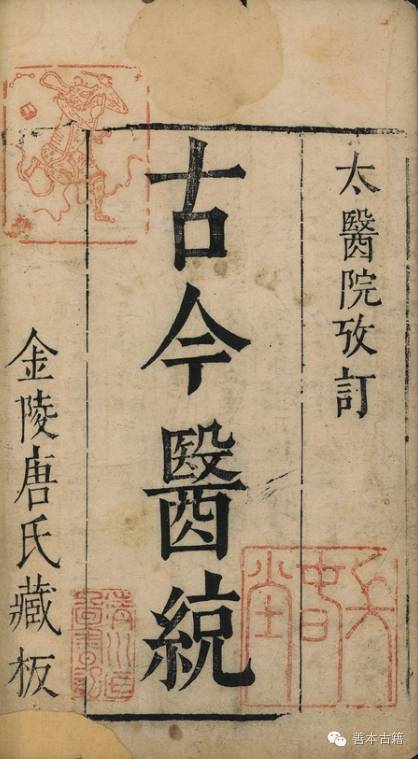 太醫院攷訂
古今醫統
金陵唐氏藏板
善本古籍